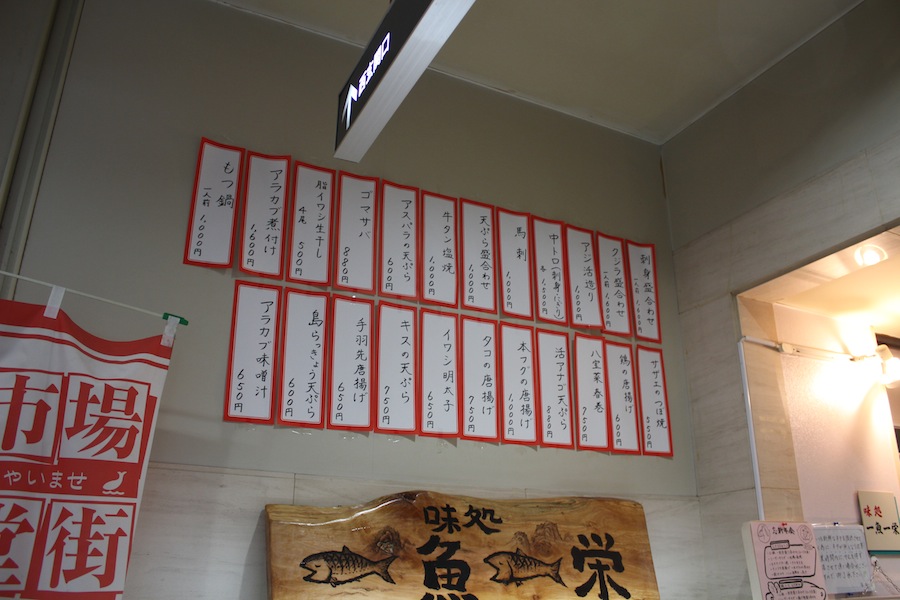 西玄関口
刺身盛合わせ
一人前 1,500円
クジラ盛合わせ
一人前 1,600円
アジ活造り
1,000円
中トロ(刺身・にぎり)
各1,500円
馬刺
1,000円
天ぷら盛合わせ
1,000円
牛タン塩焼
1,000円
アスパラの天ぷら
600円
ゴマサバ
880円
脂イワシ生干し
4尾 500円
アラカブ煮付け
1,600円
もつ鍋
一人前 1,000円
サザエのつぼ焼
550円
鶏の唐揚げ
600円
八宝菜春巻
750円
活アナゴ天ぷら
880円
本フグの唐揚げ
1,000円
タコの唐揚げ
750円
イワシ明太子
650円
キスの天ぷら
750円
手羽先唐揚げ
650円
島らっきょう天ぷら
600円
アラカブ味噌汁
650円
市場
やいませ
堂街
味処
魚
栄
味処
一魚一栄